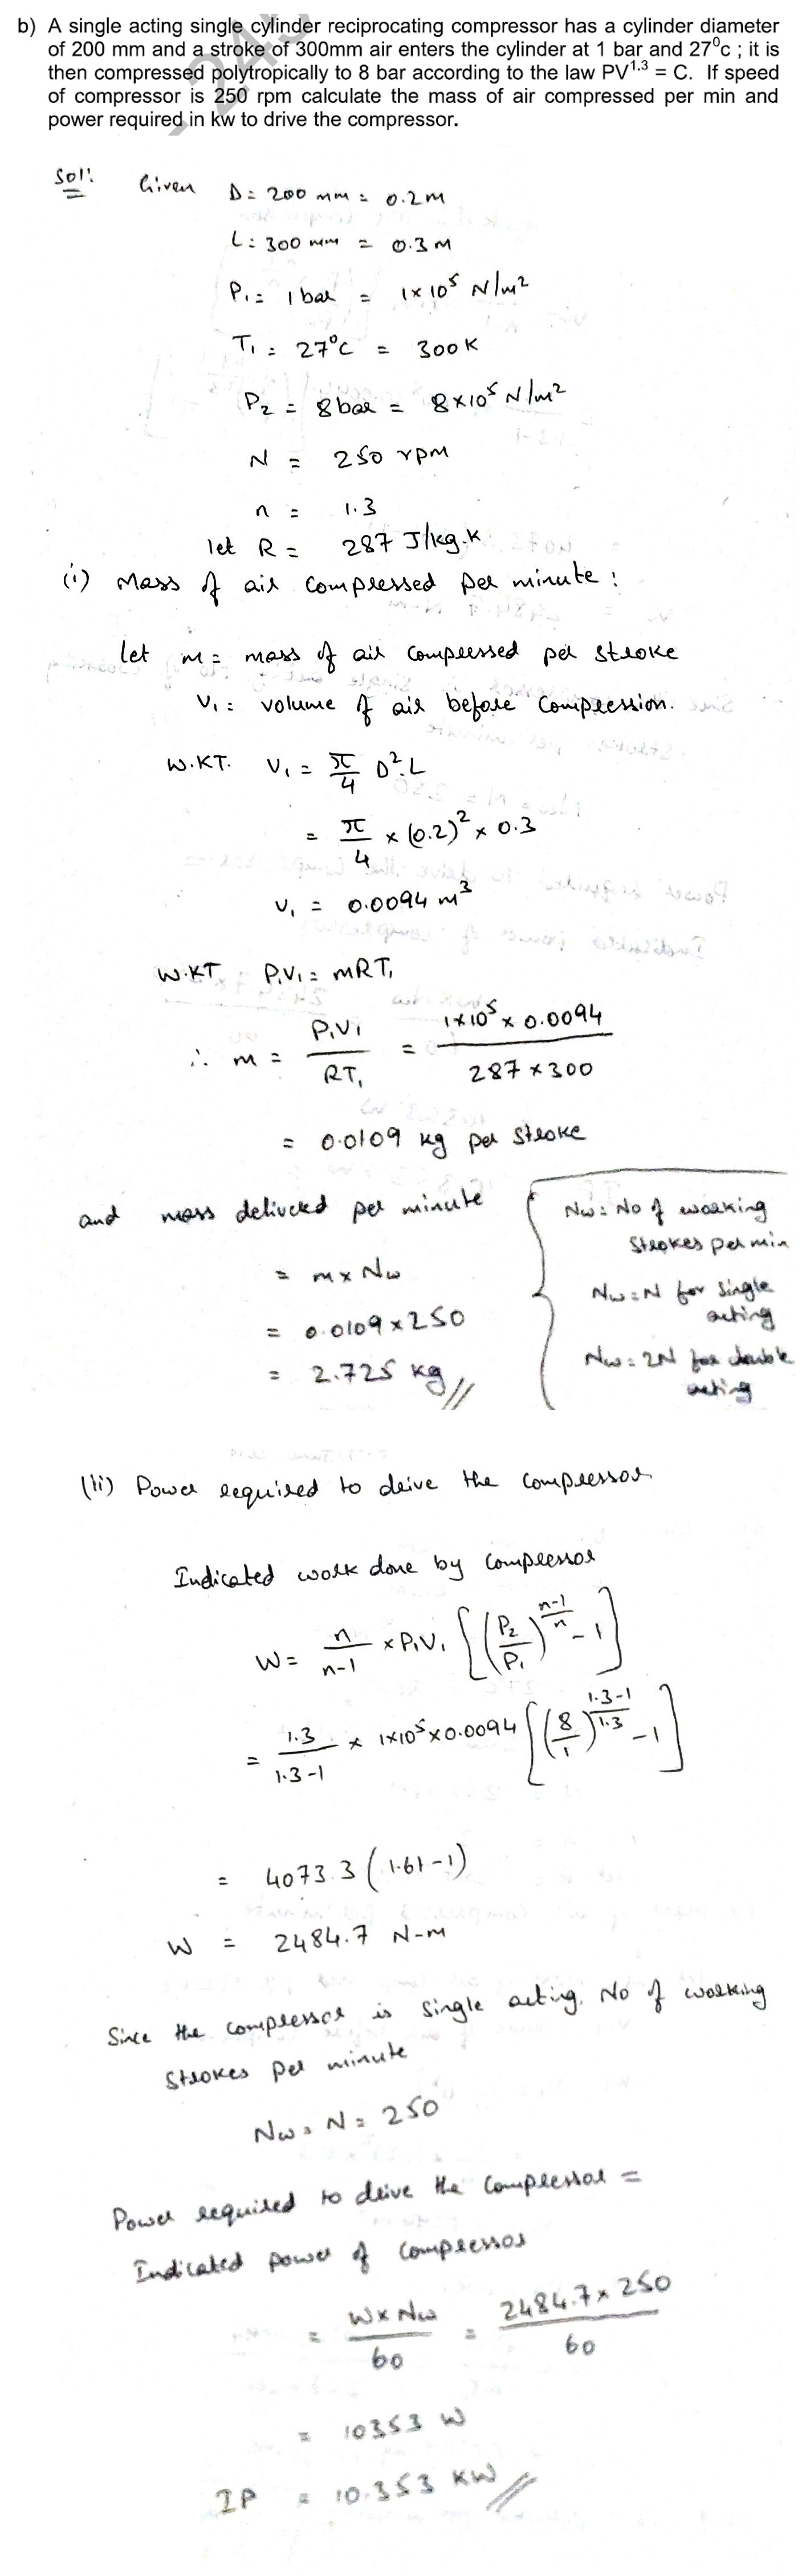 b) A single acting single cylinder reciprocating compressor has a cylinder diameter
of 200 mm and a stroke of 300mm air enters the cylinder at 1 bar and 27⁰c ; it is
then compressed polytropically to 8 bar according to the law PV^1.3 = C. If speed
of compressor is 250 rpm calculate the mass of air compressed per min and
power required in kw to drive the compressor.
Sol: Given D = 200 mm = 0.2 M
L = 300 mm = 0.3 M
P₁ = 1 bar = 1×10⁵ N/m²
T₁ = 27°C = 300 K
P₂ = 8 bar = 8×10⁵ N/m²
N = 250 rpm
n = 1.3
let R = 287 J/kg.K
(i) Mass of air compressed per minute :
let m = mass of air compressed per stroke
V₁ = volume of air before compression.
W.KT. V₁ = π/4 D².L
= π/4 × (0.2)² × 0.3
V₁ = 0.0094 m³
W.KT P₁V₁ = mRT₁
∴ m = P₁V₁/RT₁ = 1×10⁵ × 0.0094 / 287 × 300
= 0.0109 kg per stroke
and mass delivered per minute
= m × Nw
= 0.0109 × 250
= 2.725 kg //
Nw = No of working
strokes per min
Nw = N for single
acting
Nw = 2N for double
acting
(ii) Power required to drive the compressor
Indicated work done by compressor
W = n/n-1 × P₁V₁ [(P₂/P₁)^(n-1/n) - 1]
= 1.3/1.3-1 × 1×10⁵ × 0.0094 [(8/1)^(1.3-1/1.3) - 1]
= 4073.3 (1.61 - 1)
W = 2484.7 N-m
Since the compressor is single acting, No of working
strokes per minute
Nw = N = 250
Power required to drive the compressor =
Indicated power of compressor
= W × Nw / 60 = 2484.7 × 250 / 60
= 10353 W
IP = 10.353 KW //